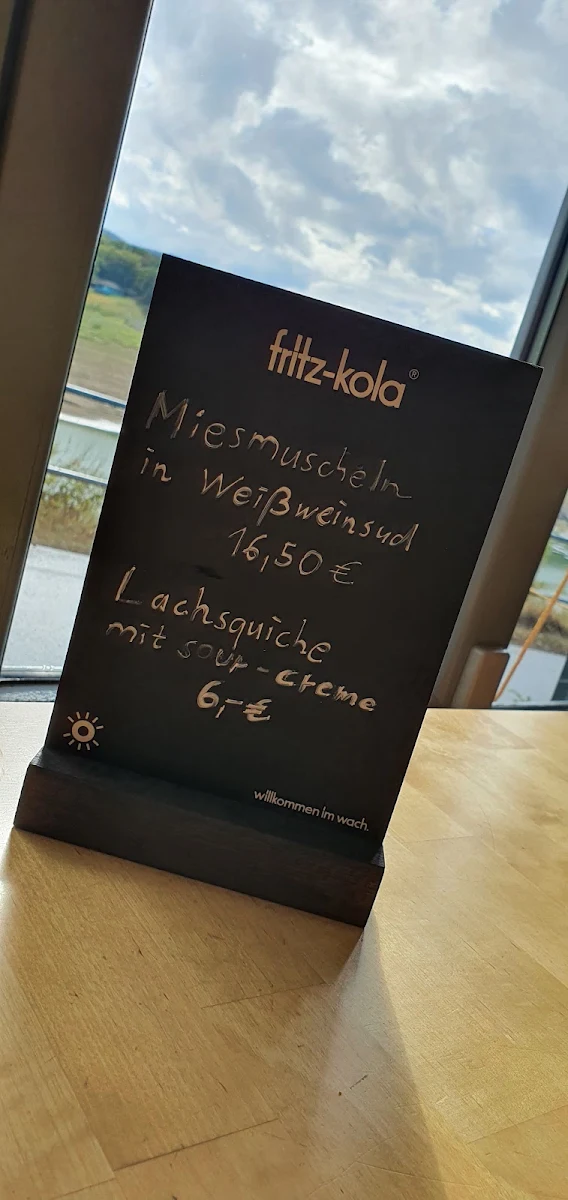 fritz-kola®
Miesmuscheln
in Weißweinsud
16,50 €
Lachsquiche
mit sour-creme
6,- €
willkommen im wach.